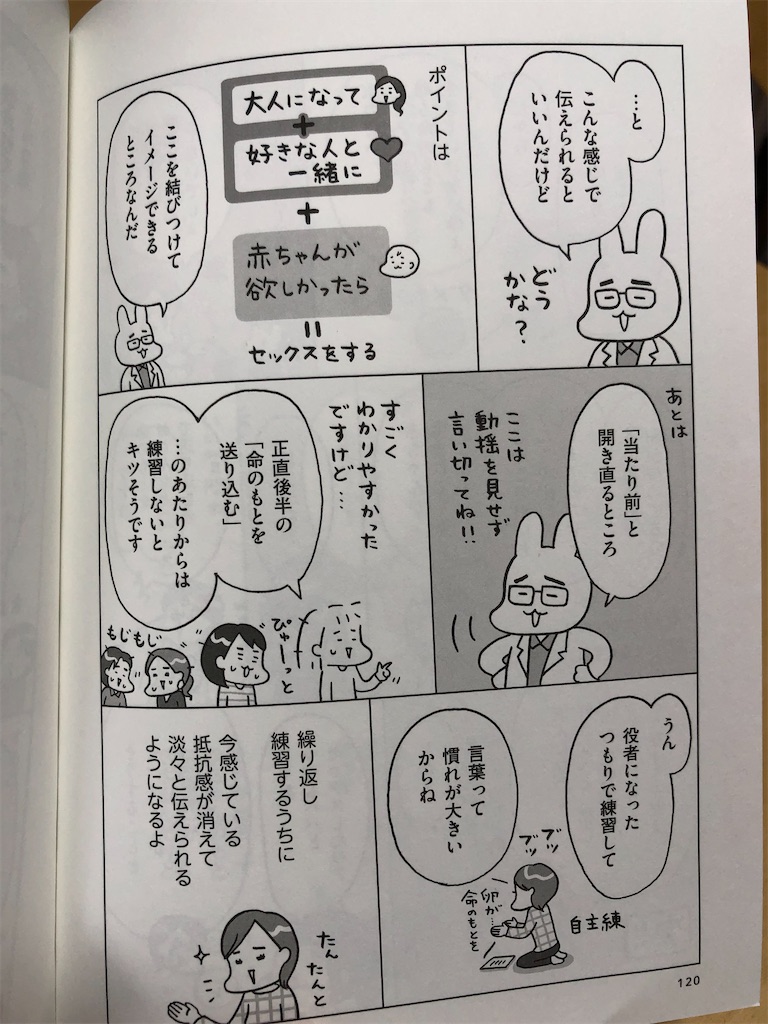 …と
こんな感じで
伝えられると
いいんだけど
どう
かな？
ポイントは
大人になって
+
好きな人と
一緒に
+
赤ちゃんが
欲しかったら
=
セックスをする
ここを結びつけて
イメージできる
ところなんだ
あとは
「当たり前」と
開き直るところ
ここは
動揺を見せず
言い切ってね!!
すごく
わかりやすかった
ですけど…
正直後半の
「命のもとを
送り込む」
…のあたりからは
練習しないと
キツそうです
ぴゅーっと
もじもじ
うん
役者になった
つもりで練習して
言葉って
慣れが大きい
からね
ブッ
ブッ
卵が…
命のもとを
自主練
繰り返し
練習するうちに
今感じている
抵抗感が消えて
淡々と伝えられる
ようになるよ
たん
たんと
120